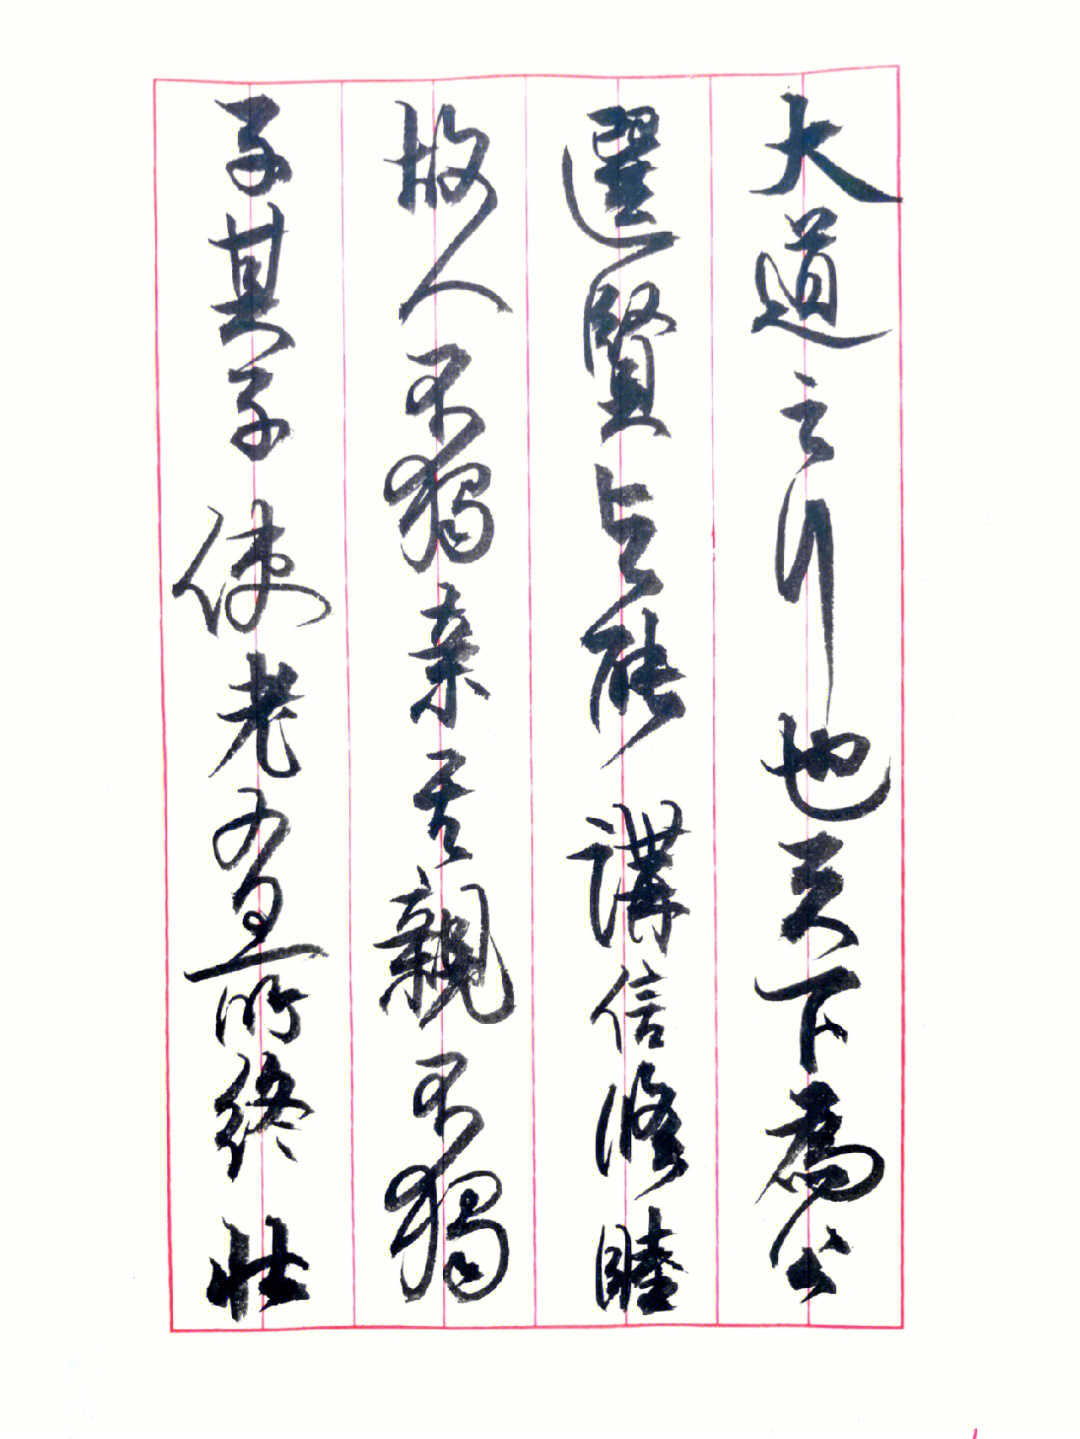 大道之行也天下為公
選賢与能講信修睦
故人不獨亲其親不獨
子其子使老有所終壯